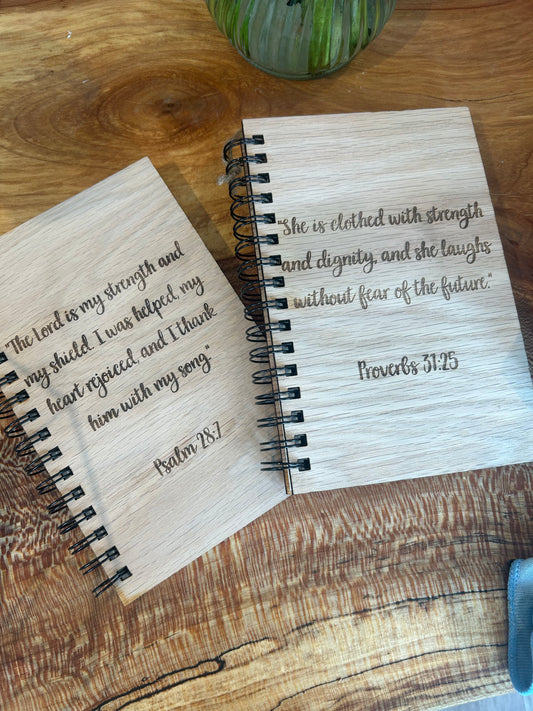 "The Lord is my strength and
my shield. I was helped, my
heart rejoiced, and I thank
him with my song"
Psalm 28:7
"She is clothed with strength
and dignity, and she laughs
without fear of the future."
Proverbs 31:25